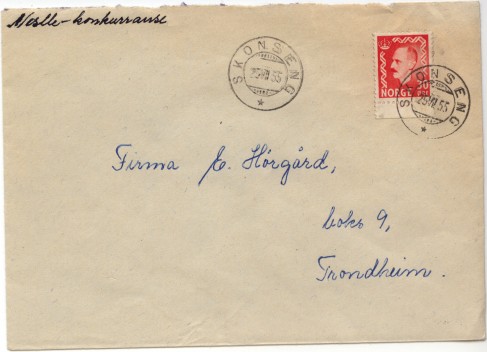 Neslle-konkurranse
SKONSENG
29 VII 55
NORGE
SKONSENG
29 VII 55
Firma E. Hörgård,
boks 9,
Trondheim.